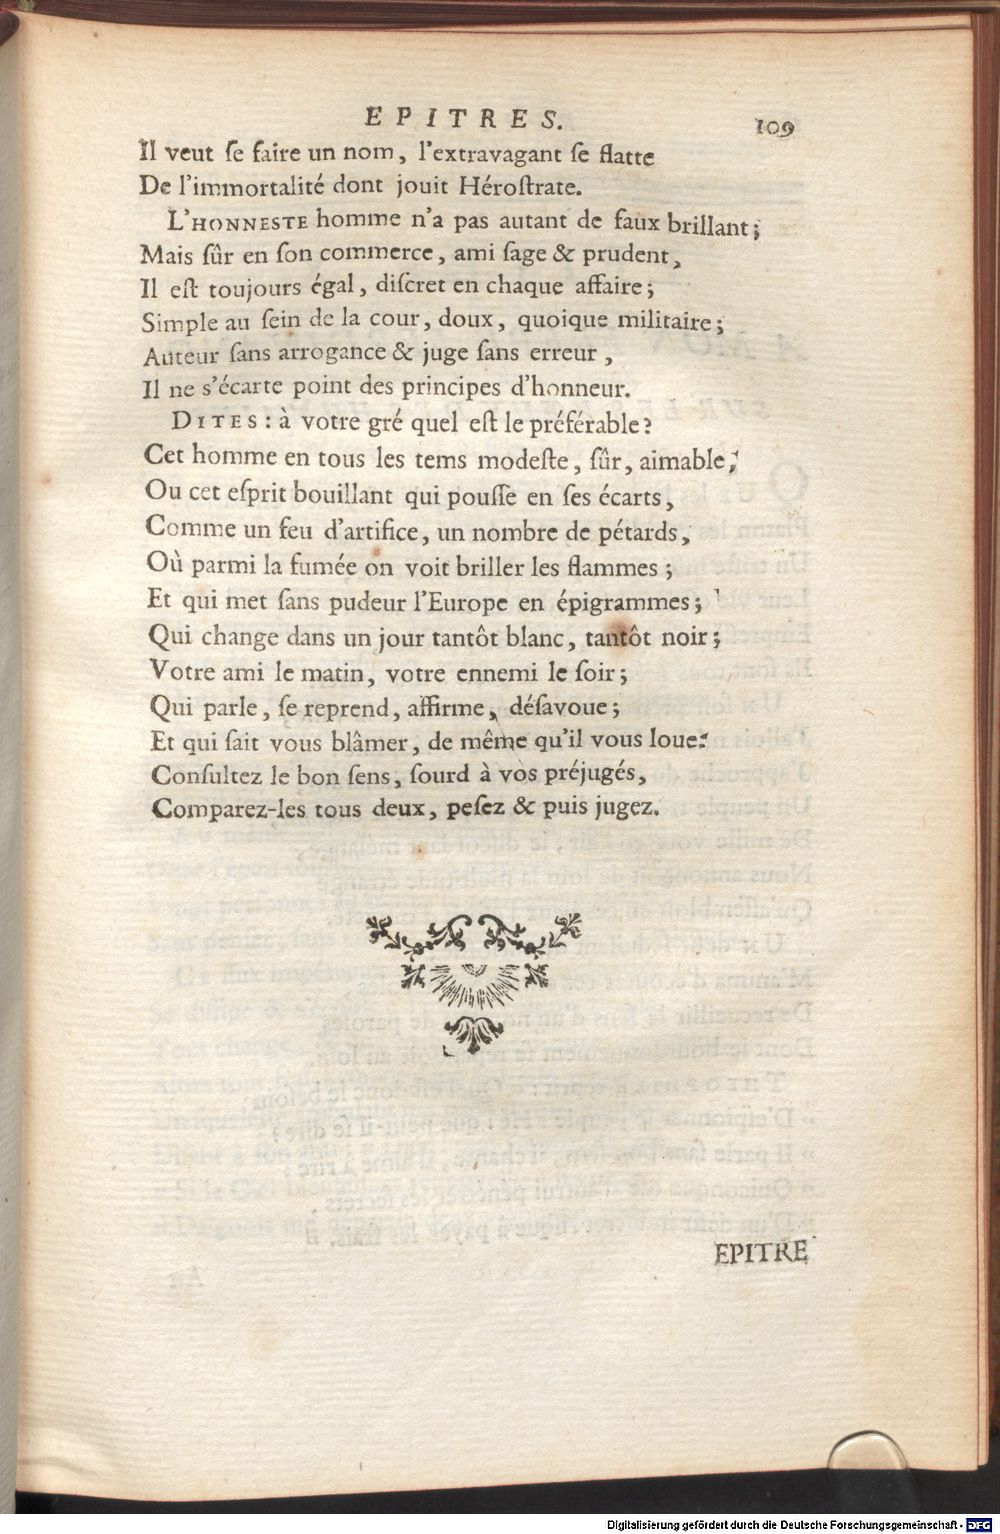 EPITRES. 109
Il veut ſe faire un nom, l'extravagant ſe flatte
De l'immortalité dont jouit Héroſtrate.
L'HONNESTE homme n'a pas autant de faux brillant;
Mais ſûr en ſon commerce, ami ſage & prudent,
Il eſt toujours égal, diſcret en chaque affaire;
Simple au ſein de la cour, doux, quoique militaire;
Auteur ſans arrogance & juge ſans erreur,
Il ne s'écarte point des principes d'honneur.
DITES: à votre gré quel eſt le préférable?
Cet homme en tous les tems modeſte, ſûr, aimable;
Ou cet eſprit bouillant qui pouſſe en ſes écarts,
Comme un feu d'artifice, un nombre de pétards,
Où parmi la fumée on voit briller les flammes;
Et qui met ſans pudeur l'Europe en épigrammes;
Qui change dans un jour tantôt blanc, tantôt noir;
Votre ami le matin, votre ennemi le ſoir;
Qui parle, ſe reprend, affirme, déſavoue;
Et qui ſait vous blâmer, de même qu'il vous loue:
Conſultez le bon ſens, ſourd à vos préjugés,
Comparez-les tous deux, peſez & puis jugez.
EPITRE
Digitalisierung gefördert durch die Deutsche Forschungsgemeinschaft - DFG